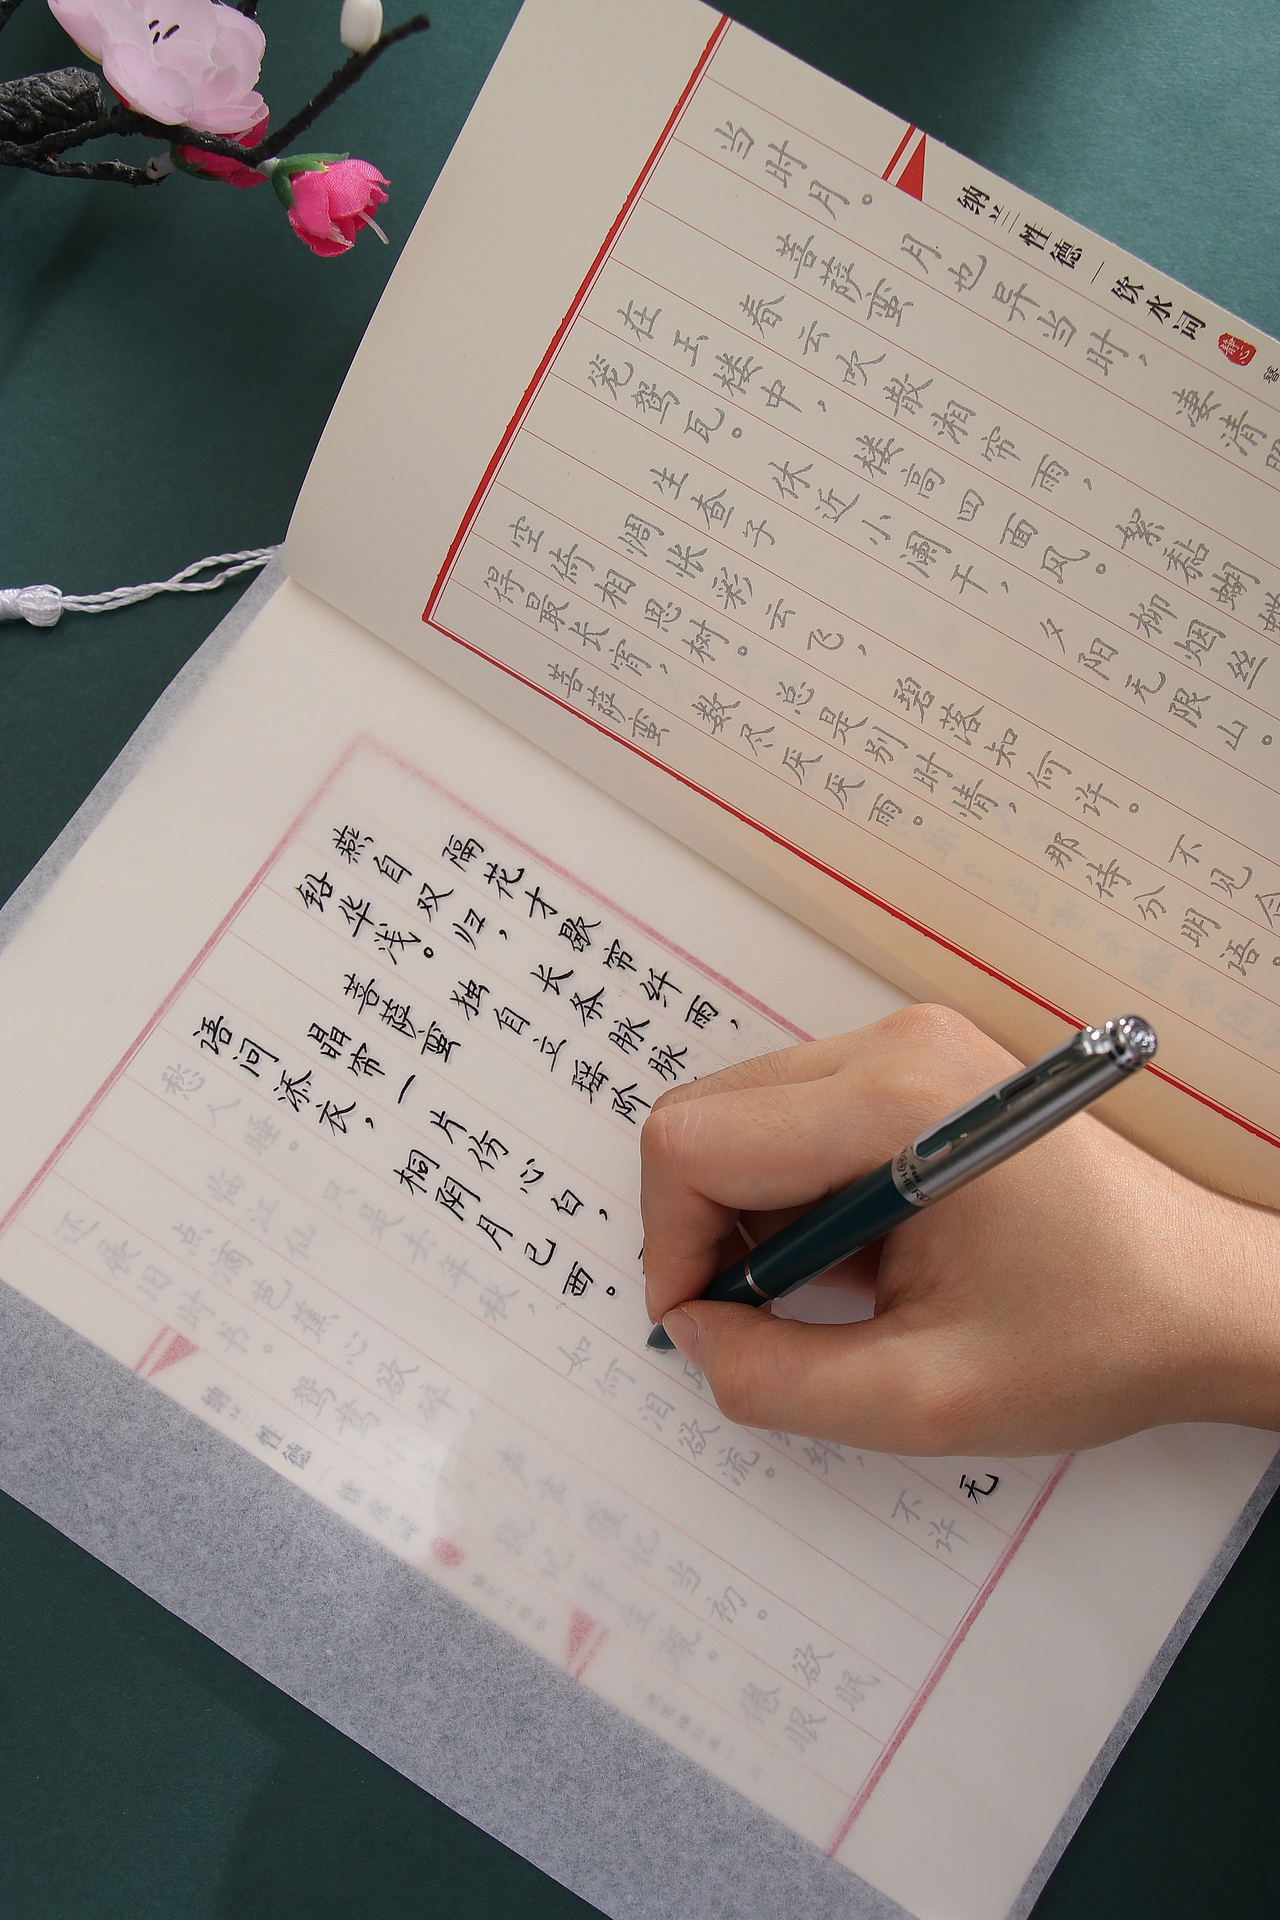 当时月。月也异当时，凄清照
菩萨蛮
春云吹散湘帘雨，絮黏蝴蝶
在玉楼中，楼高四面风。柳烟丝
笼鸳瓦。休近小阑干，夕阳无限山。
生查子
惆怅彩云飞，碧落知何许。不见合
空倚相思树。总是别时情，那待分明语。
得最长宵，数尽厌厌雨。
菩萨蛮
纳兰性德—饮水词
静心
隔花才歇帘纤雨，
燕自双归，长条脉脉
铅华浅。独自立瑶阶
菩萨蛮
晶帘一片伤心白，无
语问添衣，桐阴月已西。不许
愁人睡。只是去年秋，如何泪欲流。
临江仙
点滴芭蕉心欲碎，声声催忆当初。欲眠
还展旧时书。鸳鸯小字，犹记手生疏。倦眼
纳兰性德—饮水词
HERO